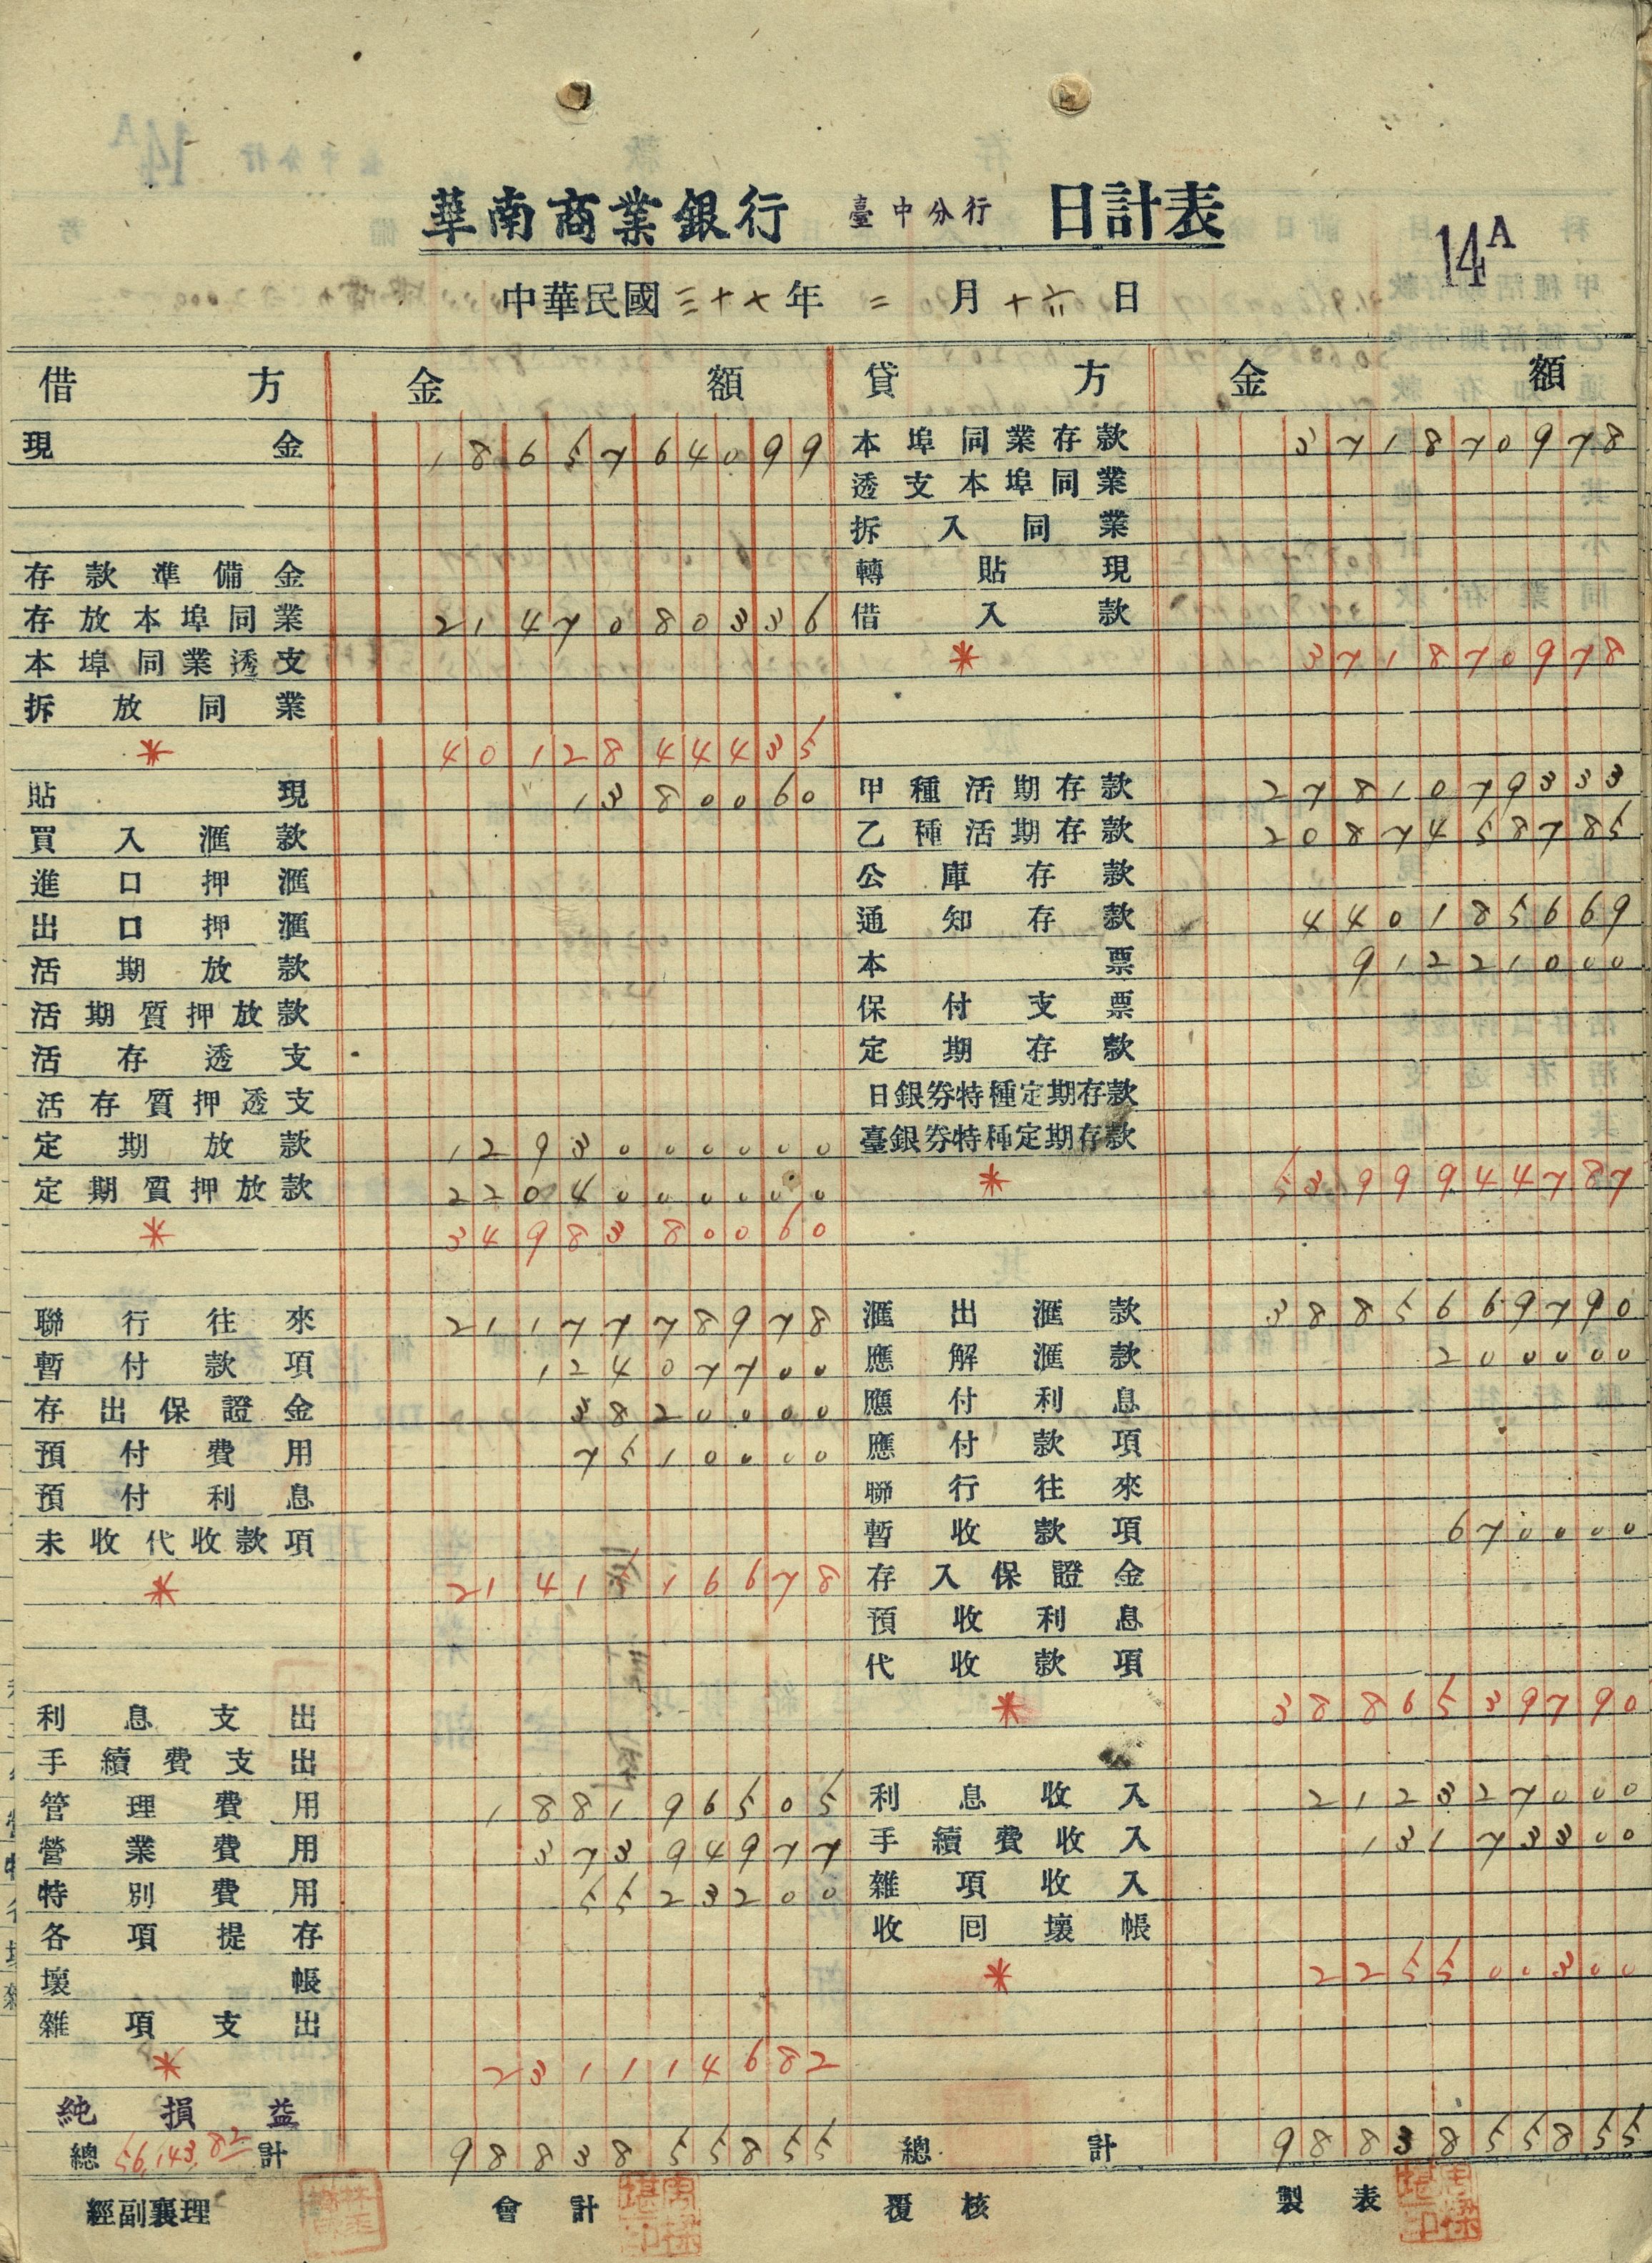 華南商業銀行 臺中分行 日計表
14A
中華民國三十七年二月十六日
借方 金額 貸方 金額
現金 1865764099 本埠同業存款 371870978
透支本埠同業
拆入同業
存款準備金 轉貼現
存放本埠同業 2147080336 借入款
本埠同業透支 * 371870978
拆放同業
* 4012844435
貼現 1380060 甲種活期存款 2781079333
買入滙款 乙種活期存款 2087458785
進口押滙 公庫存款
出口押滙 通知存款 440185669
活期放款 本票 91221000
活期質押放款 保付支票
活存透支 定期存款
活存質押透支 日銀券特種定期存款
定期放款 1293000000 臺銀券特種定期存款
定期質押放款 2204000000 * 5399944787
* 3498380060
聯行往來 2117778978 滙出滙款 3885669790
暫付款項 12407700 應解滙款 200000
存出保證金 3820000 應付利息
預付費用 7510000 應付款項
預付利息 聯行往來
未收代收款項 暫收款項 670000
* 2141516678 存入保證金
預收利息
代收款項
利息支出 * 3886539790
手續費支出
管理費用 188196505 利息收入 212327000
營業費用 37394977 手續費收入 13173300
特別費用 5523200 雜項收入
各項提存 收回壞帳
壞帳 * 225500300
雜項支出
* 231114682
純損益
總計 56,143.82 9883855855 總計 9883855855
經副襄理 會計 覆核 製表